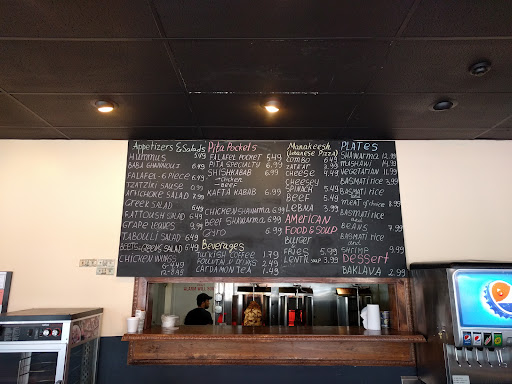 Appetizers & Salads
HUMMUS 5.49
BABA GHANNOUJ 6.49
FALAFEL - 6 PIECE 6.99
TZATZIKI SAUSE
ARTICHOKE SALAD
GREEK SALAD
FATTOUSH SALAD 6.49
TABOULLI SALAD 6.49
BEETS & GREENS SALAD 6.49
CHICKEN WINGS
Pita Pockets
FILAFEL POCKET 5.49
PITA SPECIALTY 6.99
SHISH KABAB 6.99
-chicken
-beef
KAFTA KABAB 6.99
CHICKEN SHAWRMA 6.99
BEEF SHAWRMA 6.99
Gyro 6.99
Beverages
TURKISH COFFEE 1.79
CARDAMON TEA 1.49
Manakeesh
(Lebanese Pizza)
COMBO 6.49
ZATAR 3.99
CHEESE 4.49
CHEESEY
SPINACH 5.49
BEEF 5.49
LEBNA 3.99
AMERICAN
FOOD & SOUP
BURGER
and
FRIES 5.99
LENTIL SOUP 3.99
PLATES
SHAWARMA 12.99
MUSHAWI 14.99
VEGETARIAN 11.99
BASMATI RICE 3.99
BASMATI
RICE and
meat of choice 8.99
BASMATI
RICE and
BEANS 7.99
BASMATI
RICE and
SHRIMP 9.99
Dessert
BAKLAVA 2.99